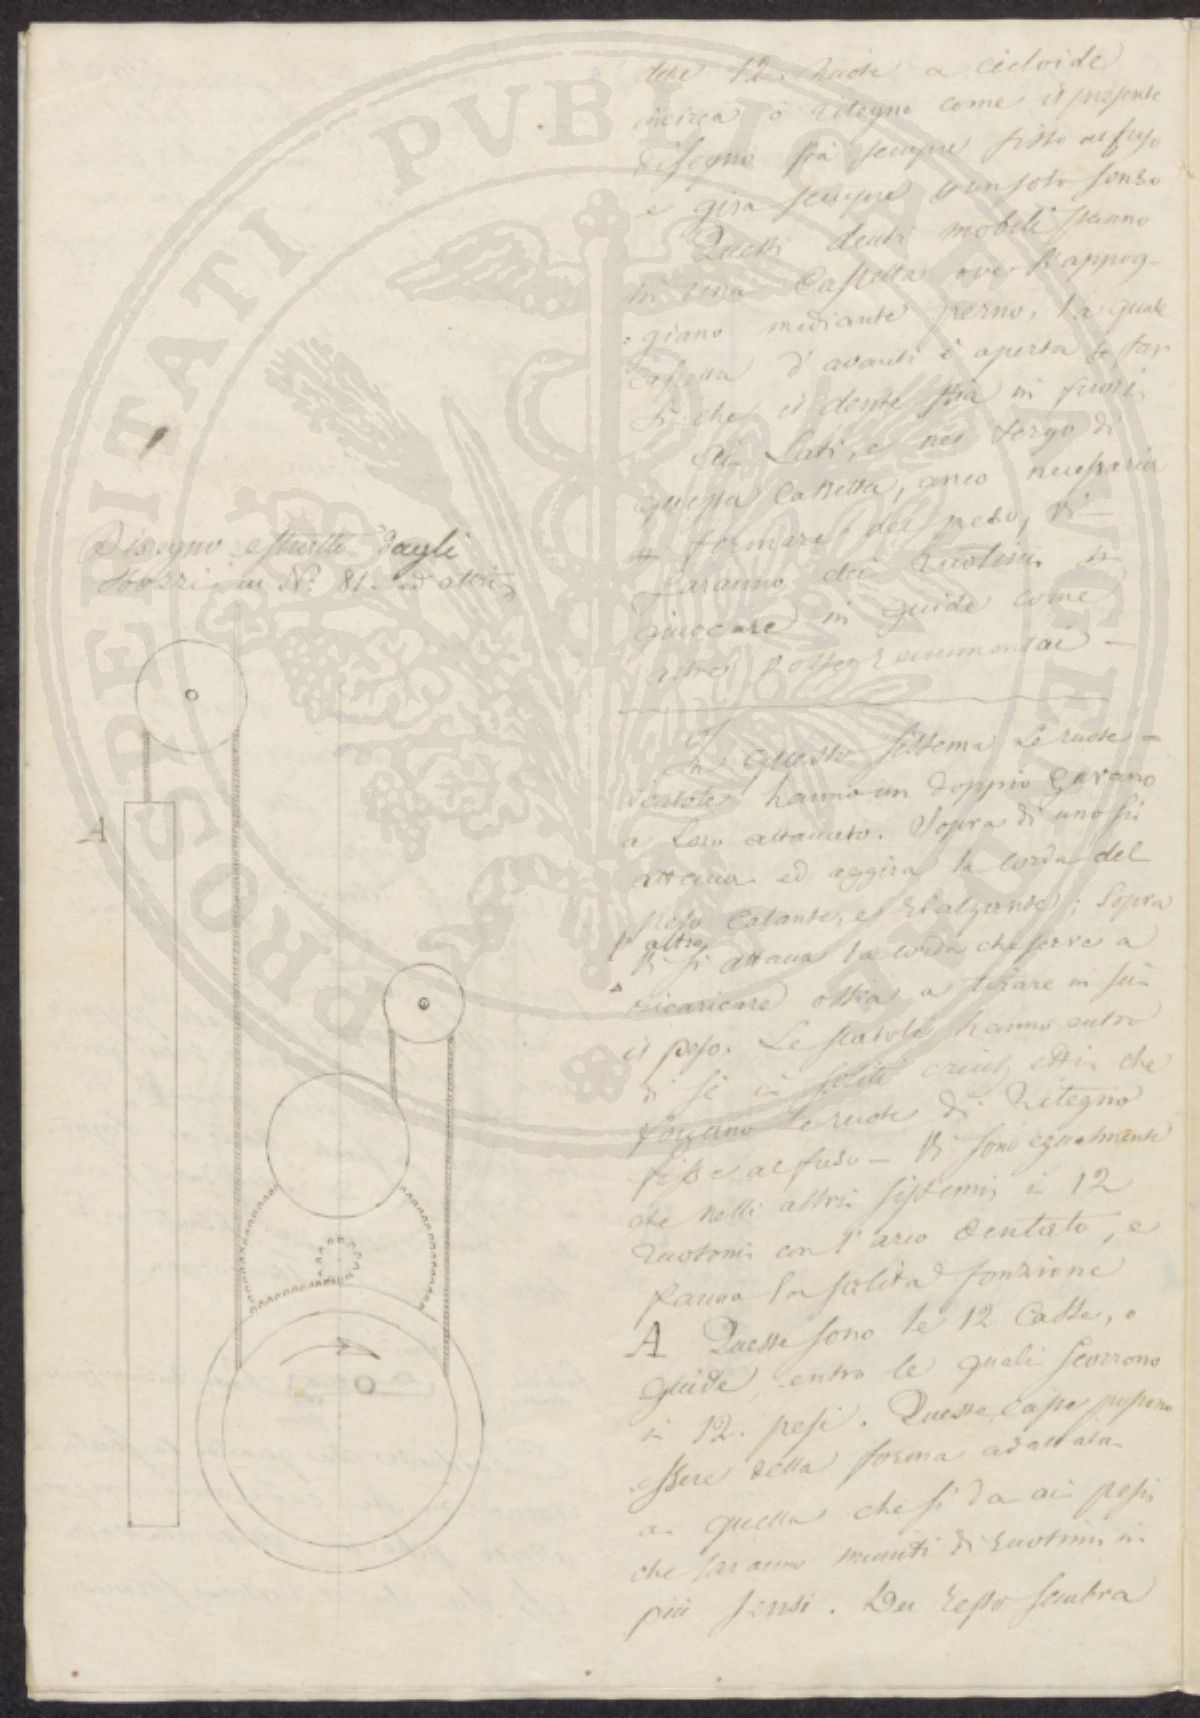 Disegno estratto dagli
in N.º 81. ed altri
A
delle 12. Ruote a cicloide
o ritegno come il presente
disegno stà sempre fisso al fuso
e gira sempre d'un solo senso
Questi denti mobili stanno
in una Cassetta ove s'appog-
giano mediante perno, la quale
Cassetta d'avanti è aperta
che il dente stia in fuori
Lati, e nel tergo di
questa Cassetta, anco necessaria
formare del peso, vi
faranno dei Ruotini
giuocare in guide come
altre
In questo sistema Le ruote
scatole hanno un doppio
a Loro attaccato. Sopra di uno si
attacca ed aggira la corda del
peso Calante, e rialzante; Sopra
l'altro
si attacca la corda che serve a
ricaricare ossia a tirare in sù
il peso. Le scatole hanno entro
di se i soliti che
forzano Le ruote di Ritegno
fisse al fuso — Vi sono egualmente
che nelli altri sistemi i 12
Ruotoni con l'arco dentato, e
fanno la solita fonzione
A Queste sono le 12 Casse, o
Guide entro le quali scorrono
i 12. pesi. Queste casse possono
essere della forma adattata
a quella che si da ai pesi
che saranno muniti di ruotini in
più sensi. Del resto sembra
PROSPERITATI PVBLICAE AVGENDAE